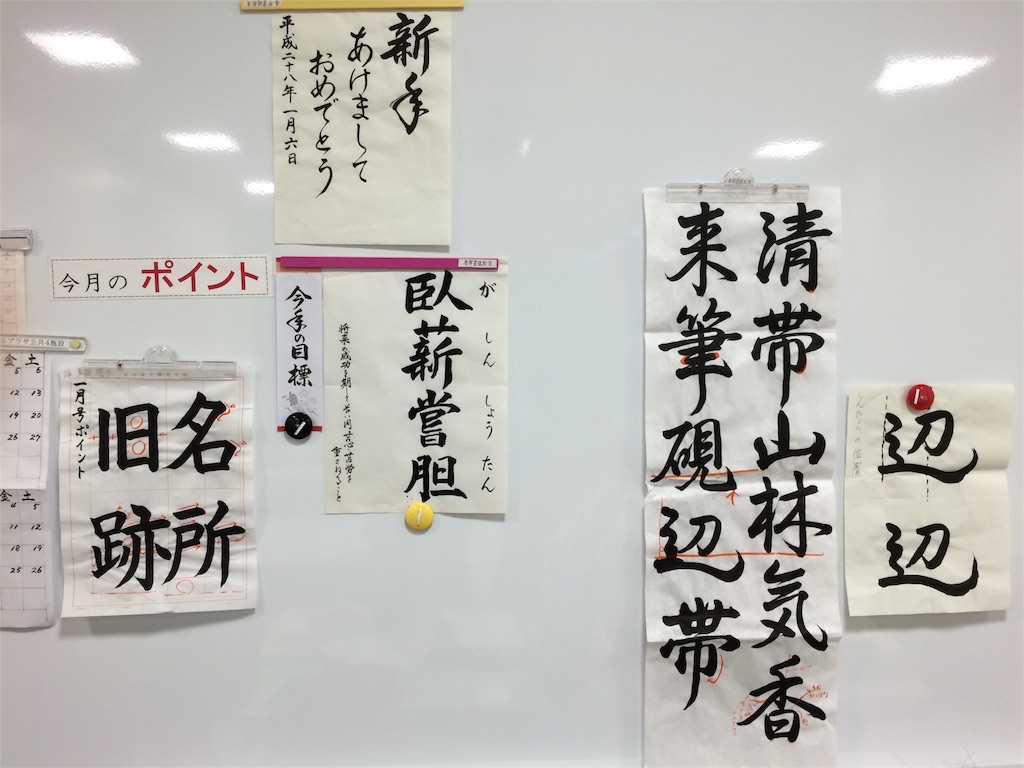 新年
あけまして
おめでとう
平成二十八年一月六日
今月の ポイント
今年の目標
がしんしょうたん
臥薪嘗胆
将来の成功を期して長い間苦心苦労を
重ねること
一月号ポイント
名所
旧跡
清帯山林気香
来筆硯辺帯
辺
辺
しんにょうの位置
プラザ公共4施設
金 土
5 6
12 13
19 20
26 27
金 土
4 5
11 12
18 19
25 26